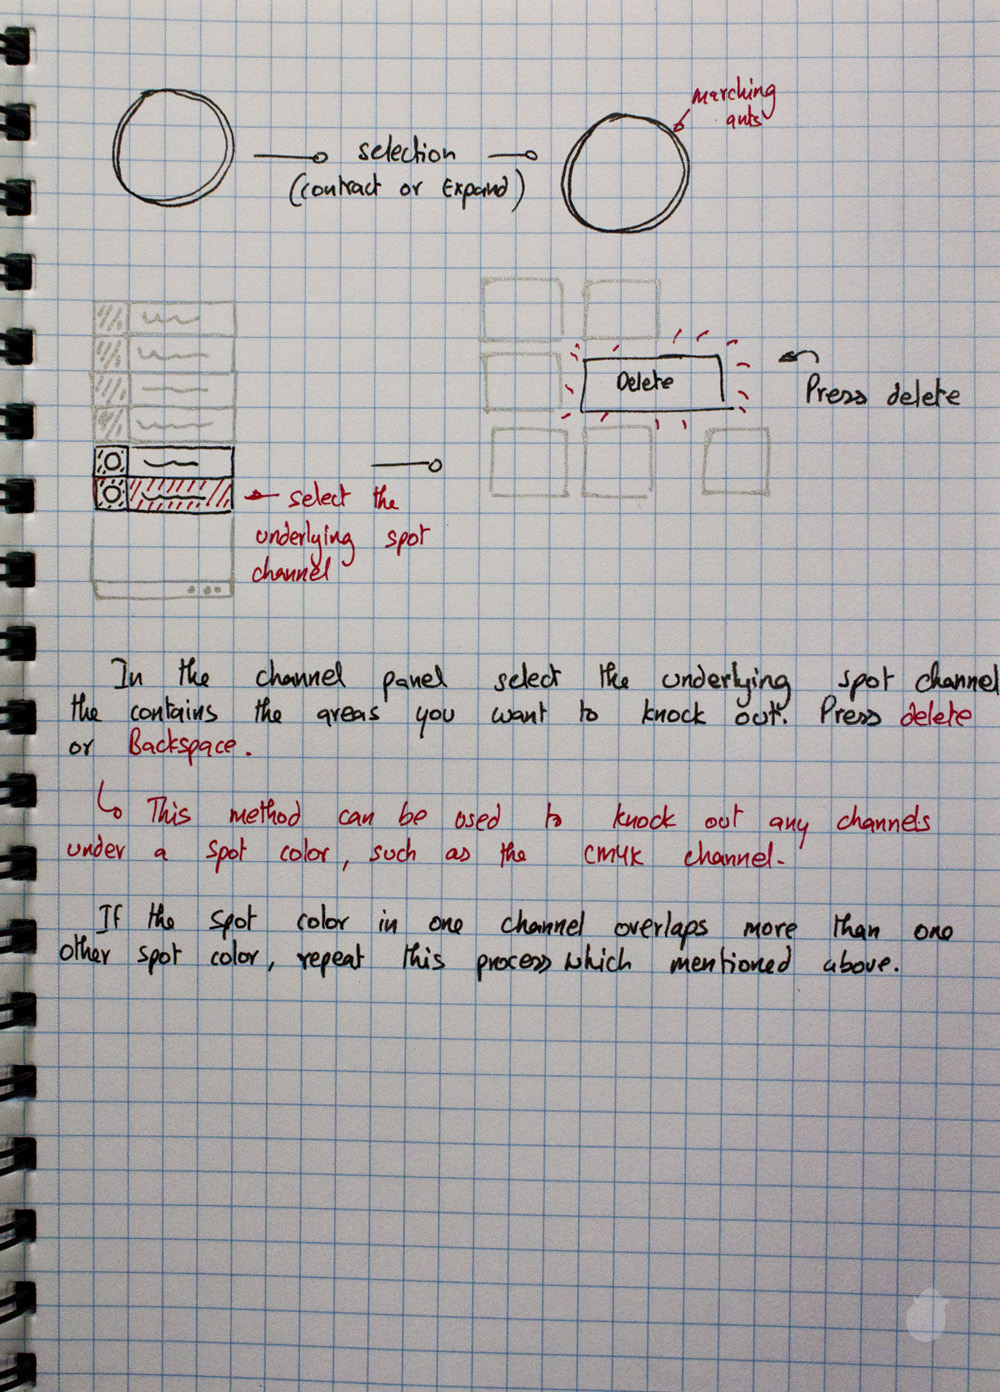 marching
ants
selection
(contract or Expand)
Delete
Press delete
select the
underlying spot
channel
In the channel panel select the underlying spot channel
the contains the areas you want to knock out. Press delete
or Backspace.
This method can be used to knock out any channels
under a spot color, such as the CMYK channel.
If the spot color in one channel overlaps more than one
other spot color, repeat this process which mentioned above.